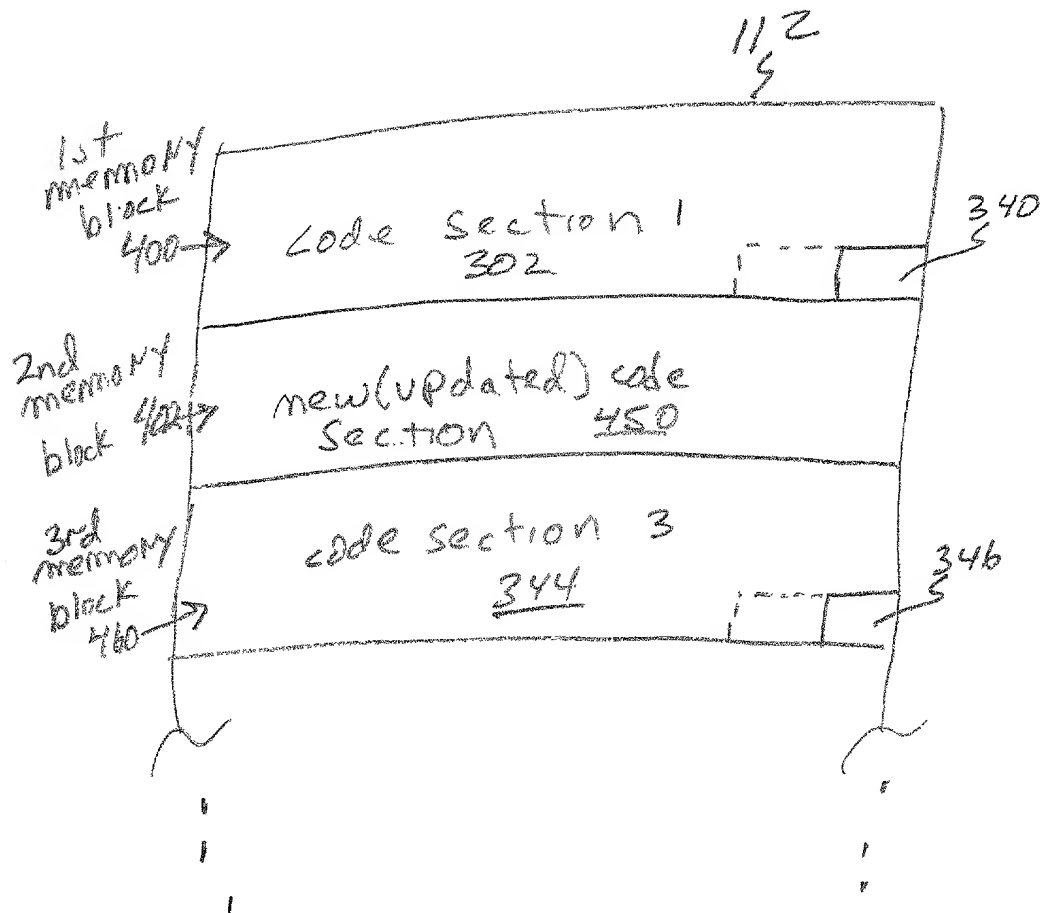 112
1st
memory
block
400
code section 1
302
340
2nd
memory
block 402
new(updated) code
section 450
3rd
memory
block
460
code section 3
344
346